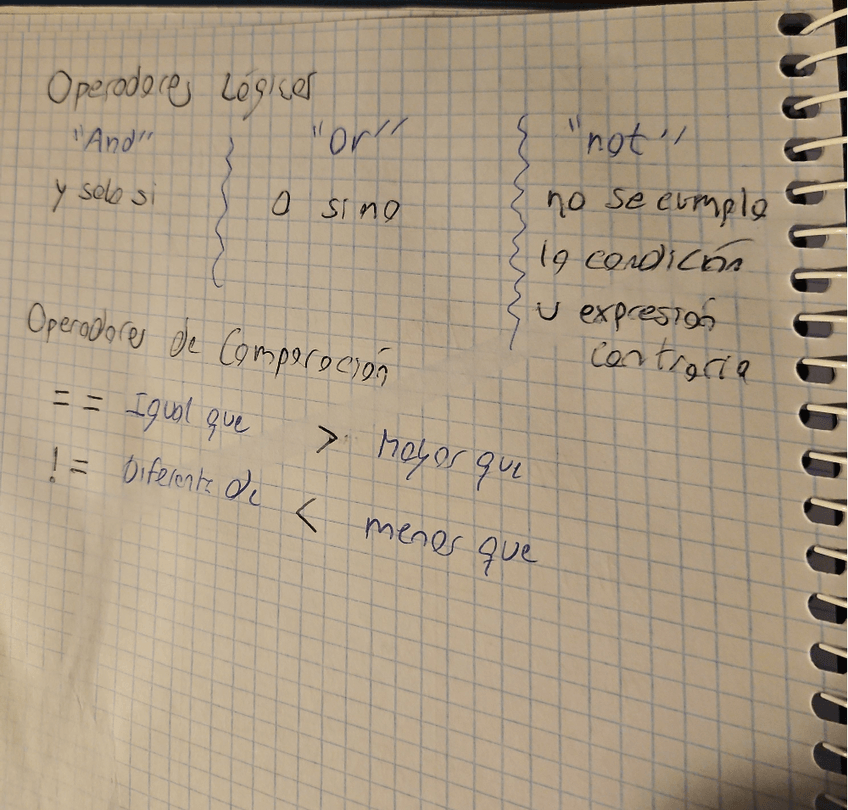 Operadores Lógicos
"And" "Or" "not"
y solo si O si no no se cumpla
la condición
u expresión
contraria
Operadores de Comparación
== Igual que > mayor que
!= Diferente de < menor que